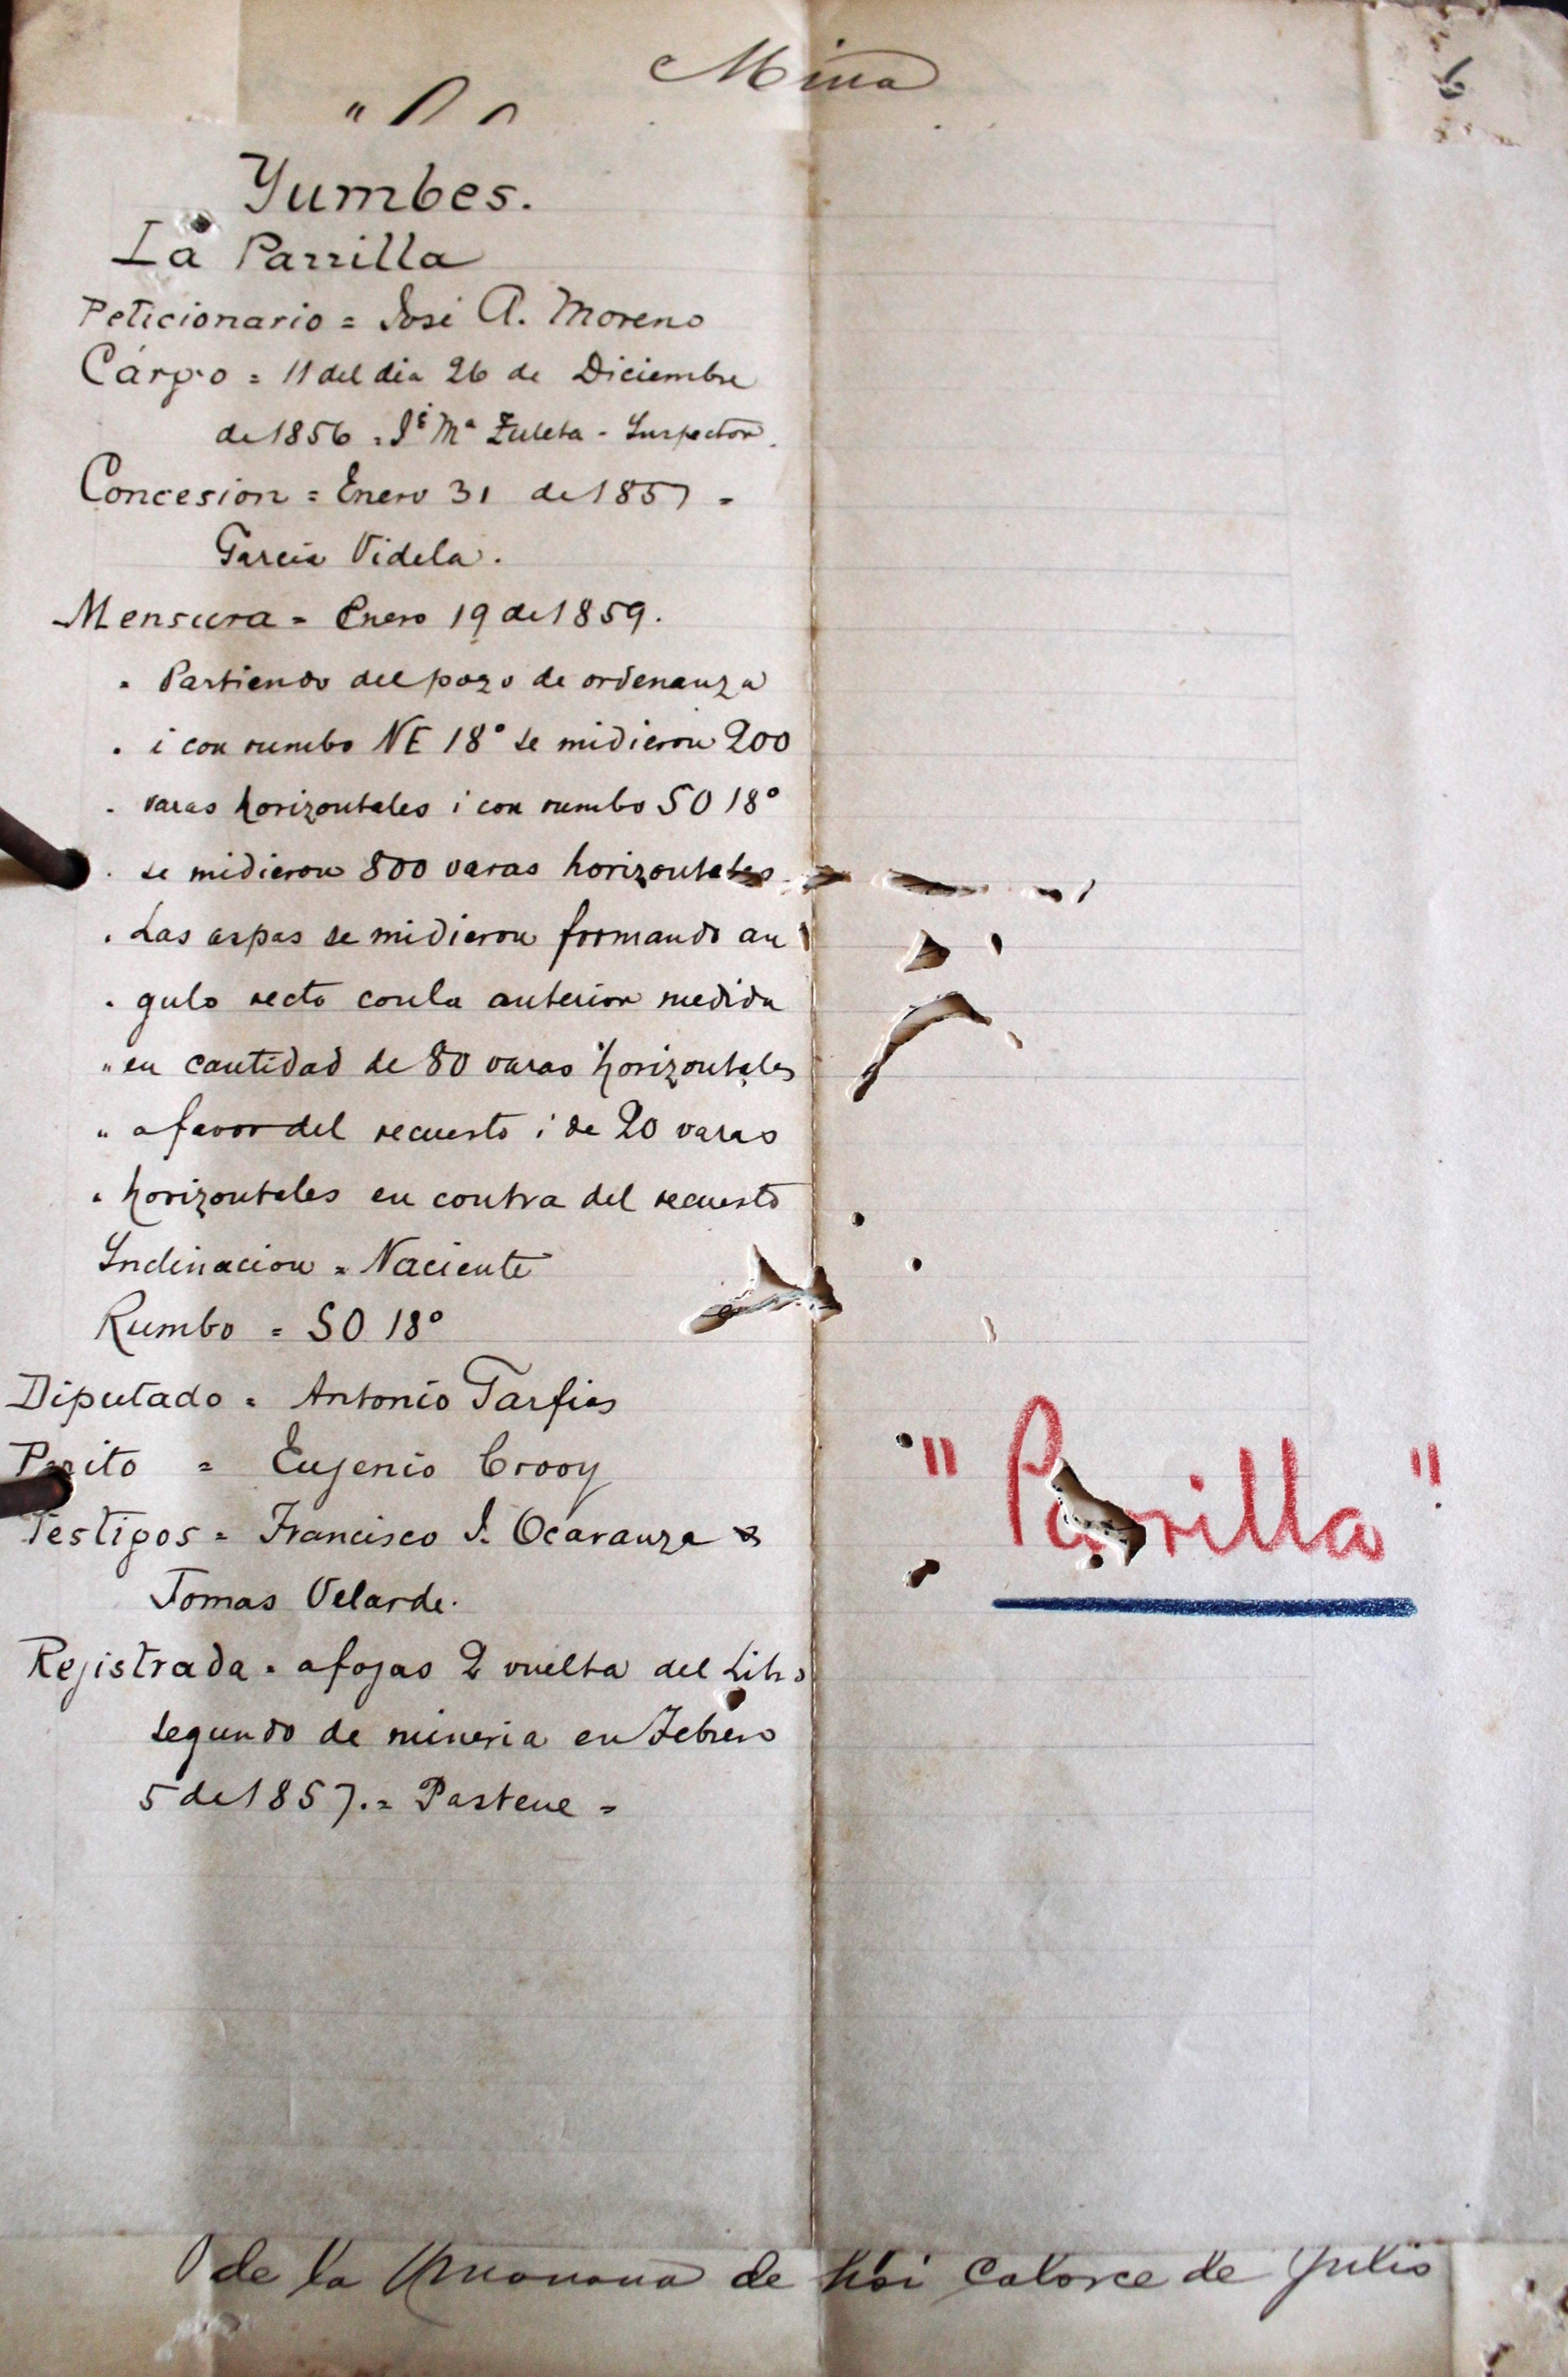 Mina
6
Yumbes.
La Parrilla
Peticionario = José A. Moreno
Cárgo = 11 del dia 26 de Diciembre
de 1856 = Jé Ma Zuleta - Inspector.
Concesion = Enero 31 de 1857 =
Garcia Videla.
Mensura = Enero 19 de 1859.
" Partiendo del pozo de ordenanza
" i con rumbo NE 18° se midieron 200
" varas horizontales i con rumbo SO 18°
" se midieron 800 varas horizontales
" Las aspas se midieron formando an
" gulo recto con la anterior medida
" en cantidad de 80 varas horizontales
" a favor del recuesto i de 20 varas
" horizontales en contra del recuesto
Inclinacion = Naciente
Rumbo = SO 18°
Diputado = Antonio Tarfias
Perito = Eugenio Crooy
"Parrilla"
Testigos = Francisco J. Ocaranza
Tomas Velarde.
Registrada = a fojas 2 vuelta del Libro
segundo de mineria en Febrero
5 de 1857. = Pastene =
de la manana de hoi catorce de Julio